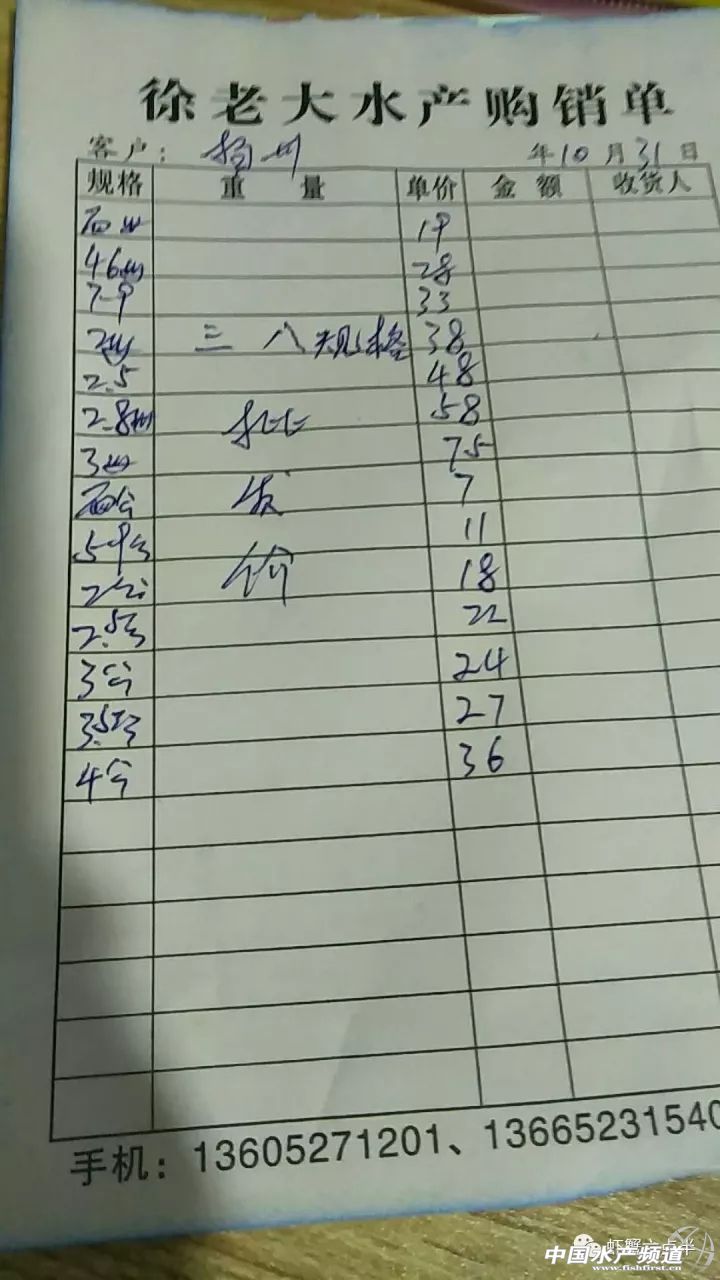 徐老大水产购销单
客户: 扬州 年10月31日
规格 重量 单价 金额 收货人
19
46 28
7-9 33
三八规格 38
2.5 48
2.8 批 58
3 75
发 7
11
价 18
2.5 22
3 24
3.5 27
4 36
手机: 13605271201、13665231540
虾蟹六点半
中国水产频道
www.fishfirst.cn